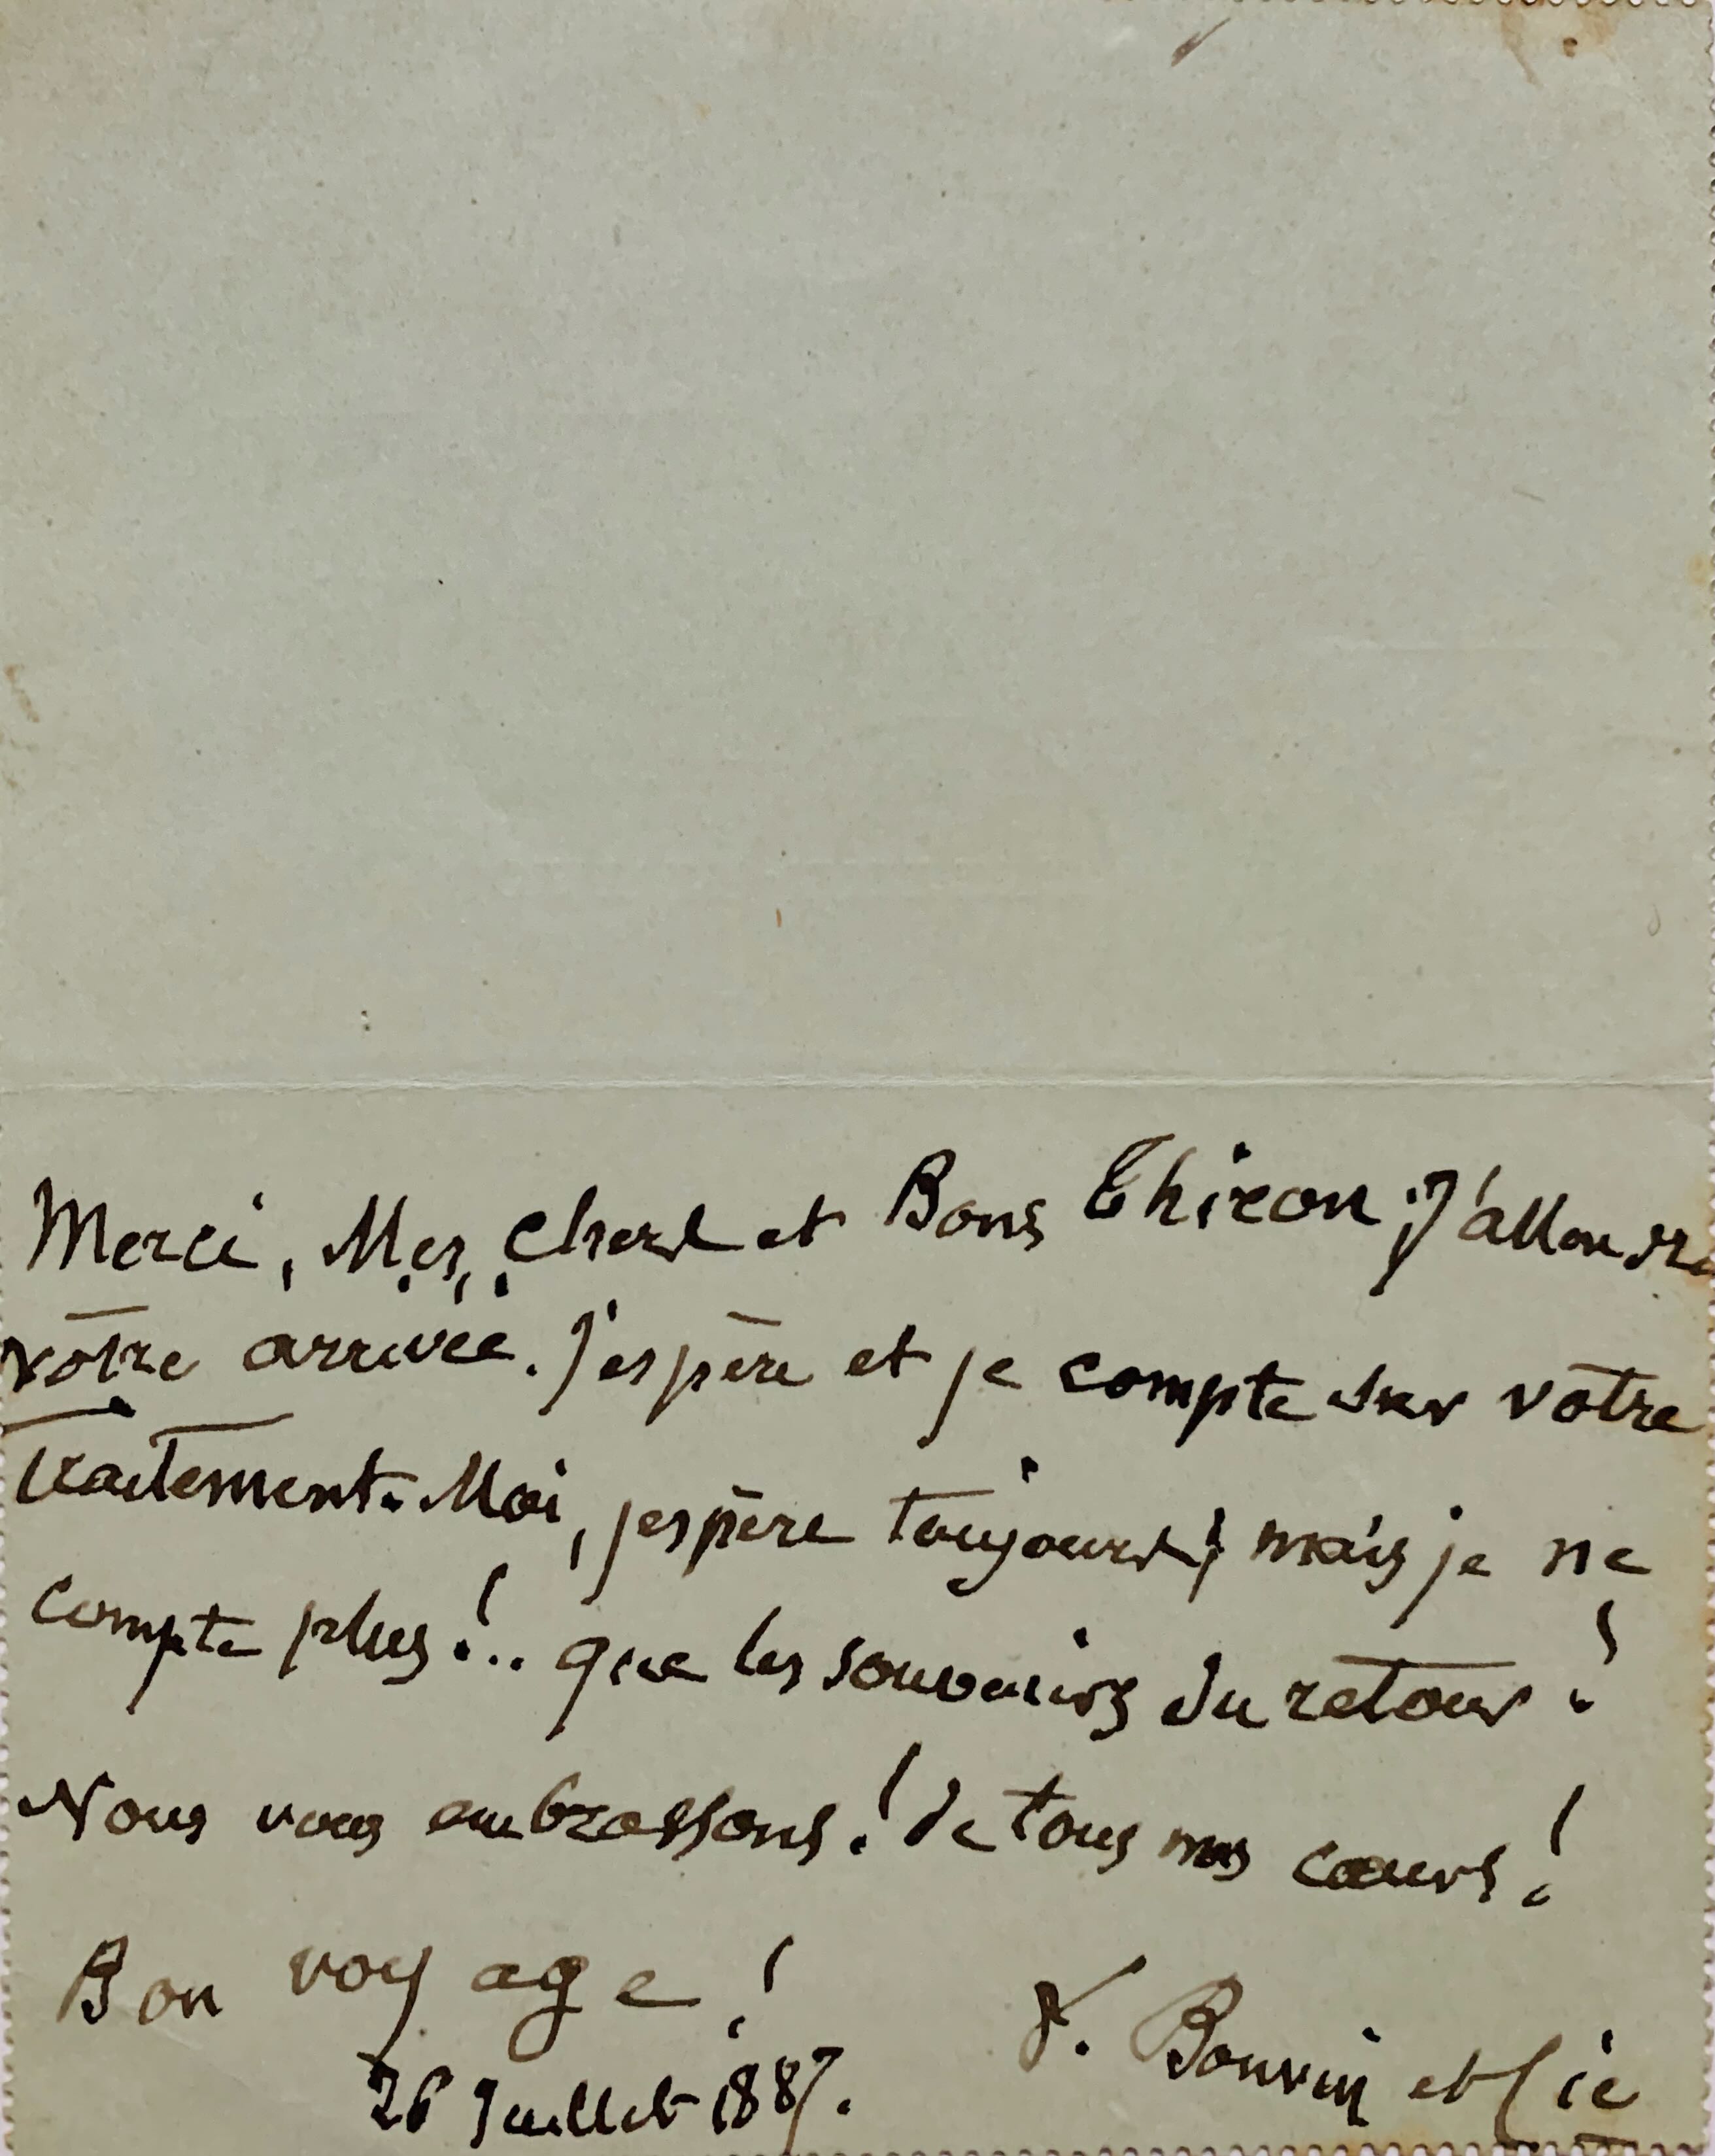 Merci, Mes, Chers et Bons Thiron; J'attendrai
votre arrivée. J'espère et je compte sur votre
traitement. Moi, j'espère toujours; mais je ne
compte plus!.. que les souvenirs du retour!
Nous vous embrassons! de tous nos cœurs!
Bon voyage!
F. Bonvin et Cie
26 Juillet 1887.